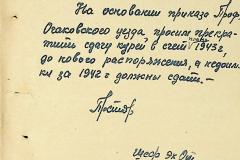 На основании приказа Преф.
Очаковского уезда, просим прекра-
тить сдачу кур, в счет 1943 г,
до нового распоряжения, а недоим-
ки за 1942 г должны сдать. —
Претор
Шеф эк. От